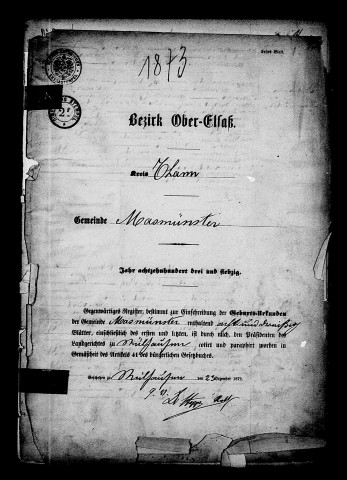 Erstes Blatt.
1873
Bezirk Ober-Elsaß.
Kreis Thann
Gemeinde Masmünster
Jahr achtzehnhundert drei und siebzig.
Gegenwärtiges Register, bestimmt zur Einschreibung der Geburts-Urkunden
der Gemeinde Masmünster enthaltend acht und dreissig
Blätter, einschließlich des ersten und letzten, ist durch mich, den Präsidenten des
Landgerichtes zu Mülhausen cotirt und paraphirt worden in
Gemäßheit des Artikels 41 des bürgerlichen Gesetzbuches.
Geschehen zu Mülhausen den 2 Dezember 1872.